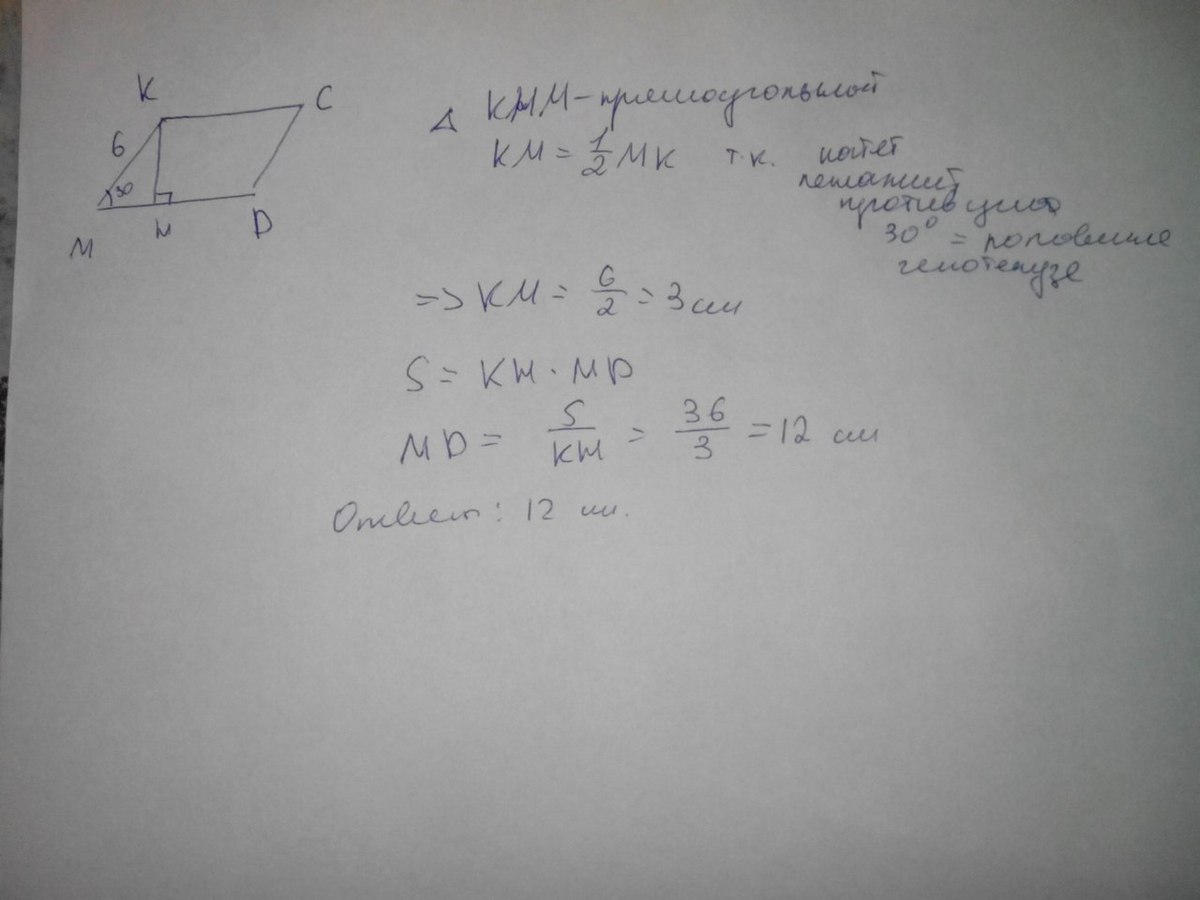 K C
6
30
M H D
Δ KHM - прямоугольный
KH = 1/2 MK т.к. катет
лежащий
против угла
30° = половине
гипотенузе
=> KH = 6/2 = 3 см
S = KH · MD
MD = S/KH = 36/3 = 12 см
Ответ: 12 см.